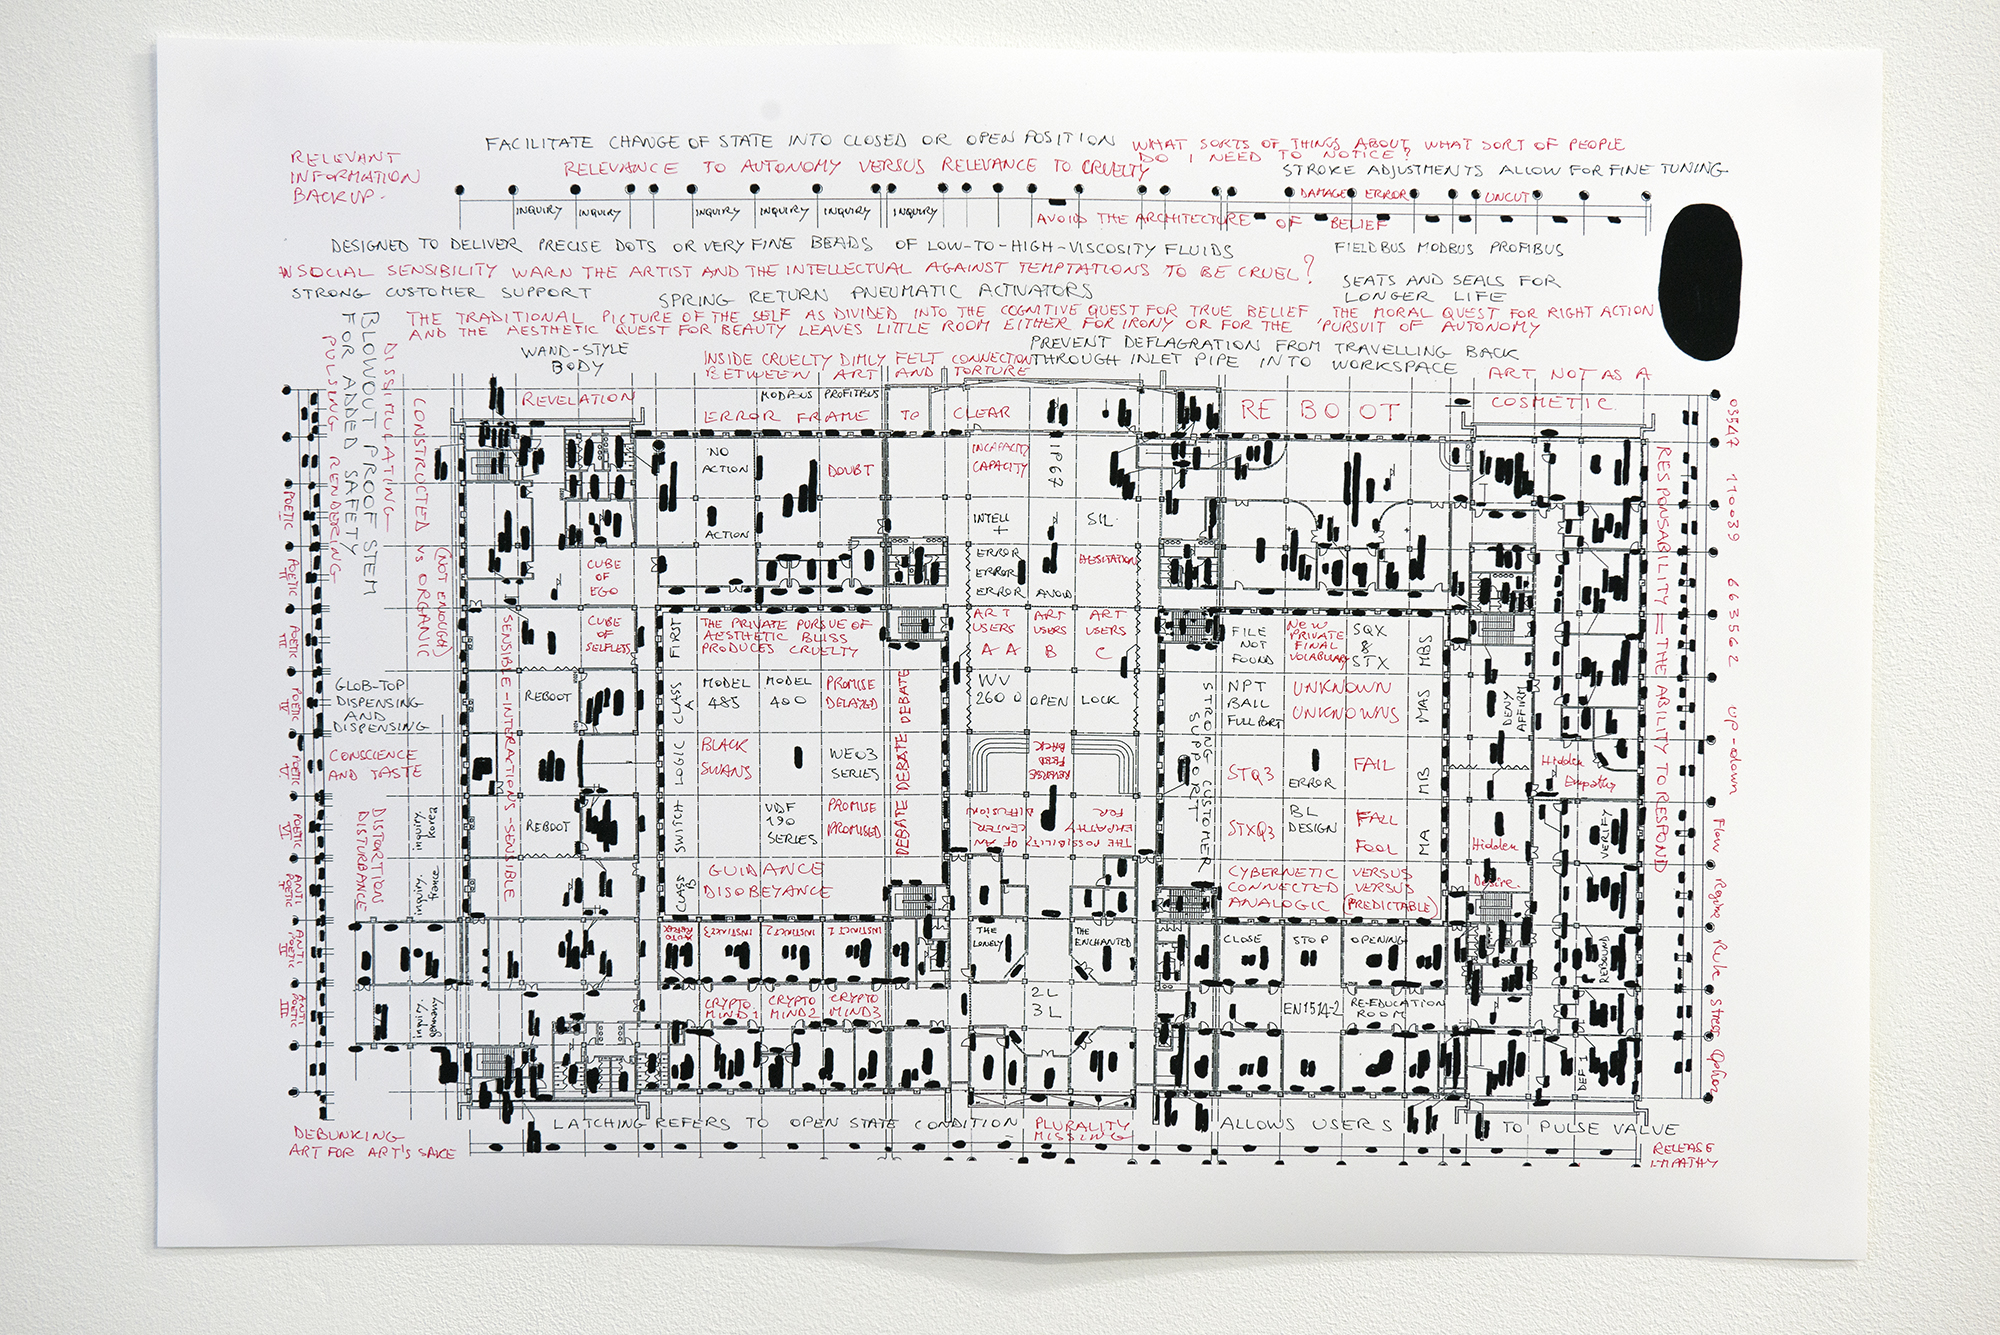 FACILITATE CHANGE OF STATE INTO CLOSED OR OPEN POSITION
WHAT SORTS OF THINGS ABOUT WHAT SORT OF PEOPLE
DO I NEED TO NOTICE?
RELEVANT
INFORMATION
BACKUP.
RELEVANCE TO AUTONOMY VERSUS RELEVANCE TO CRUELTY
STROKE ADJUSTMENTS ALLOW FOR FINE TUNING
INQUIRY
INQUIRY
INQUIRY
INQUIRY
INQUIRY
INQUIRY
DAMAGE ERROR
UNCUT
AVOID THE ARCHITECTURE OF BELIEF
DESIGNED TO DELIVER PRECISE DOTS OR VERY FINE BEADS OF LOW-TO-HIGH-VISCOSITY FLUIDS
FIELDBUS MODBUS PROFIBUS
SOCIAL SENSIBILITY WARN THE ARTIST AND THE INTELLECTUAL AGAINST TEMPTATIONS TO BE CRUEL?
STRONG CUSTOMER SUPPORT
SPRING RETURN PNEUMATIC ACTIVATORS
SEATS AND SEALS FOR
LONGER LIFE
THE TRADITIONAL PICTURE OF THE SELF AS DIVIDED INTO THE COGNITIVE QUEST FOR TRUE BELIEF THE MORAL QUEST FOR RIGHT ACTION
AND THE AESTHETIC QUEST FOR BEAUTY LEAVES LITTLE ROOM EITHER FOR IRONY OR FOR THE PURSUIT OF AUTONOMY
WAND-STYLE
BODY
INSIDE CRUELTY DIMLY FELT CONNECTION
BETWEEN ART AND TORTURE
PREVENT DEFLAGRATION FROM TRAVELLING BACK
THROUGH INLET PIPE INTO WORKSPACE
ART NOT AS A
COSMETIC.
BLOWOUT PROOF STEM
FOR ADDED SAFETY
DISSIMULATING
PULSING RENDERING
CONSTRUCTED VS ORGANIC
(NOT ENOUGH)
REVELATION
MODBUS PROFITBUS
ERROR FRAME TO CLEAR
REBOOT
NO
ACTION
DOUBT
ACTION
INCAPACITY
CAPACITY
IP67
INTELL
+
SIL.
ERROR
ERROR
ERROR
HESITATION
AVOID
CUBE
OF
EGO
CUBE
OF
SELFLESS
SENSIBLE-INTERACTIONS-SENSIBLE
FIRST
CLASS A
LOGIC
SWITCH
CLASS B
THE PRIVATE PURSUE OF
AESTHETIC BLISS
PRODUCES CRUELTY
ART
USERS
AA
ART
USERS
B
ART
USERS
C
FILE
NOT
FOUND
NEW
PRIVATE
FINAL
VOCABULARY
SQX
&
STX
MBS
GLOB-TOP
DISPENSING
AND
DISPENSING
REBOOT
MODEL
485
MODEL
400
PROMISE
DELAYED
WV
2600
OPEN
LOCK
NPT
BALL
FULL PORT
UNKNOWN
UNKNOWNS
MAS
DENY
AFFIRM
DEBATE DEBATE DEBATE
STRONG CUSTOMER
SUPPORT
CONSCIENCE
AND TASTE
BLACK
SWANS
WE03
SERIES
BACK
FEED
REVERSE
STQ3
ERROR
FAIL
MB
Hidden
Empathy
DISTORTION
DISTURBANCE
inquiry.
korea
REBOOT
VDF
190
SERIES
PROMISE
PROMISED
THE POSSIBILITY OF AN
EMPATHY CENTER
FOR DIFFUSION
STXQ3
BL
DESIGN
FALL
FOOL
MA
Hidden
Desire.
VERIFY
inquiry.
france
GUIDANCE
DISOBEYANCE
CYBERNETIC VERSUS
CONNECTED VERSUS
ANALOGIC (PREDICTABLE)
AUTO
INSTINCT 3
INSTINCT 2
INSTINCT 1
THE
LONELY
THE
ENCHANTED
CLOSE
STOP
OPENING
REBOUND
inquiry.
germany
CRYPTO
MIND 1
CRYPTO
MIND 2
CRYPTO
MIND 3
2L
3L
EN1514-2
RE-EDUCATION
ROOM
DEF 1
POETIC
I
POETIC
II
POETIC
III
POETIC
IV
POETIC
V
POETIC
VI
ANTI
POETIC
I
ANTI
POETIC
II
ANTI
POETIC
III
RESPONSABILITY = THE ABILITY TO RESPOND
03547 110039 663562 up-down Flow Regime Rule Stress
LATCHING REFERS TO OPEN STATE CONDITION
PLURALITY
MISSING
ALLOWS USERS
TO PULSE VALVE
DEBUNKING
ART FOR ART'S SAKE
RELEASE
EMPATHY